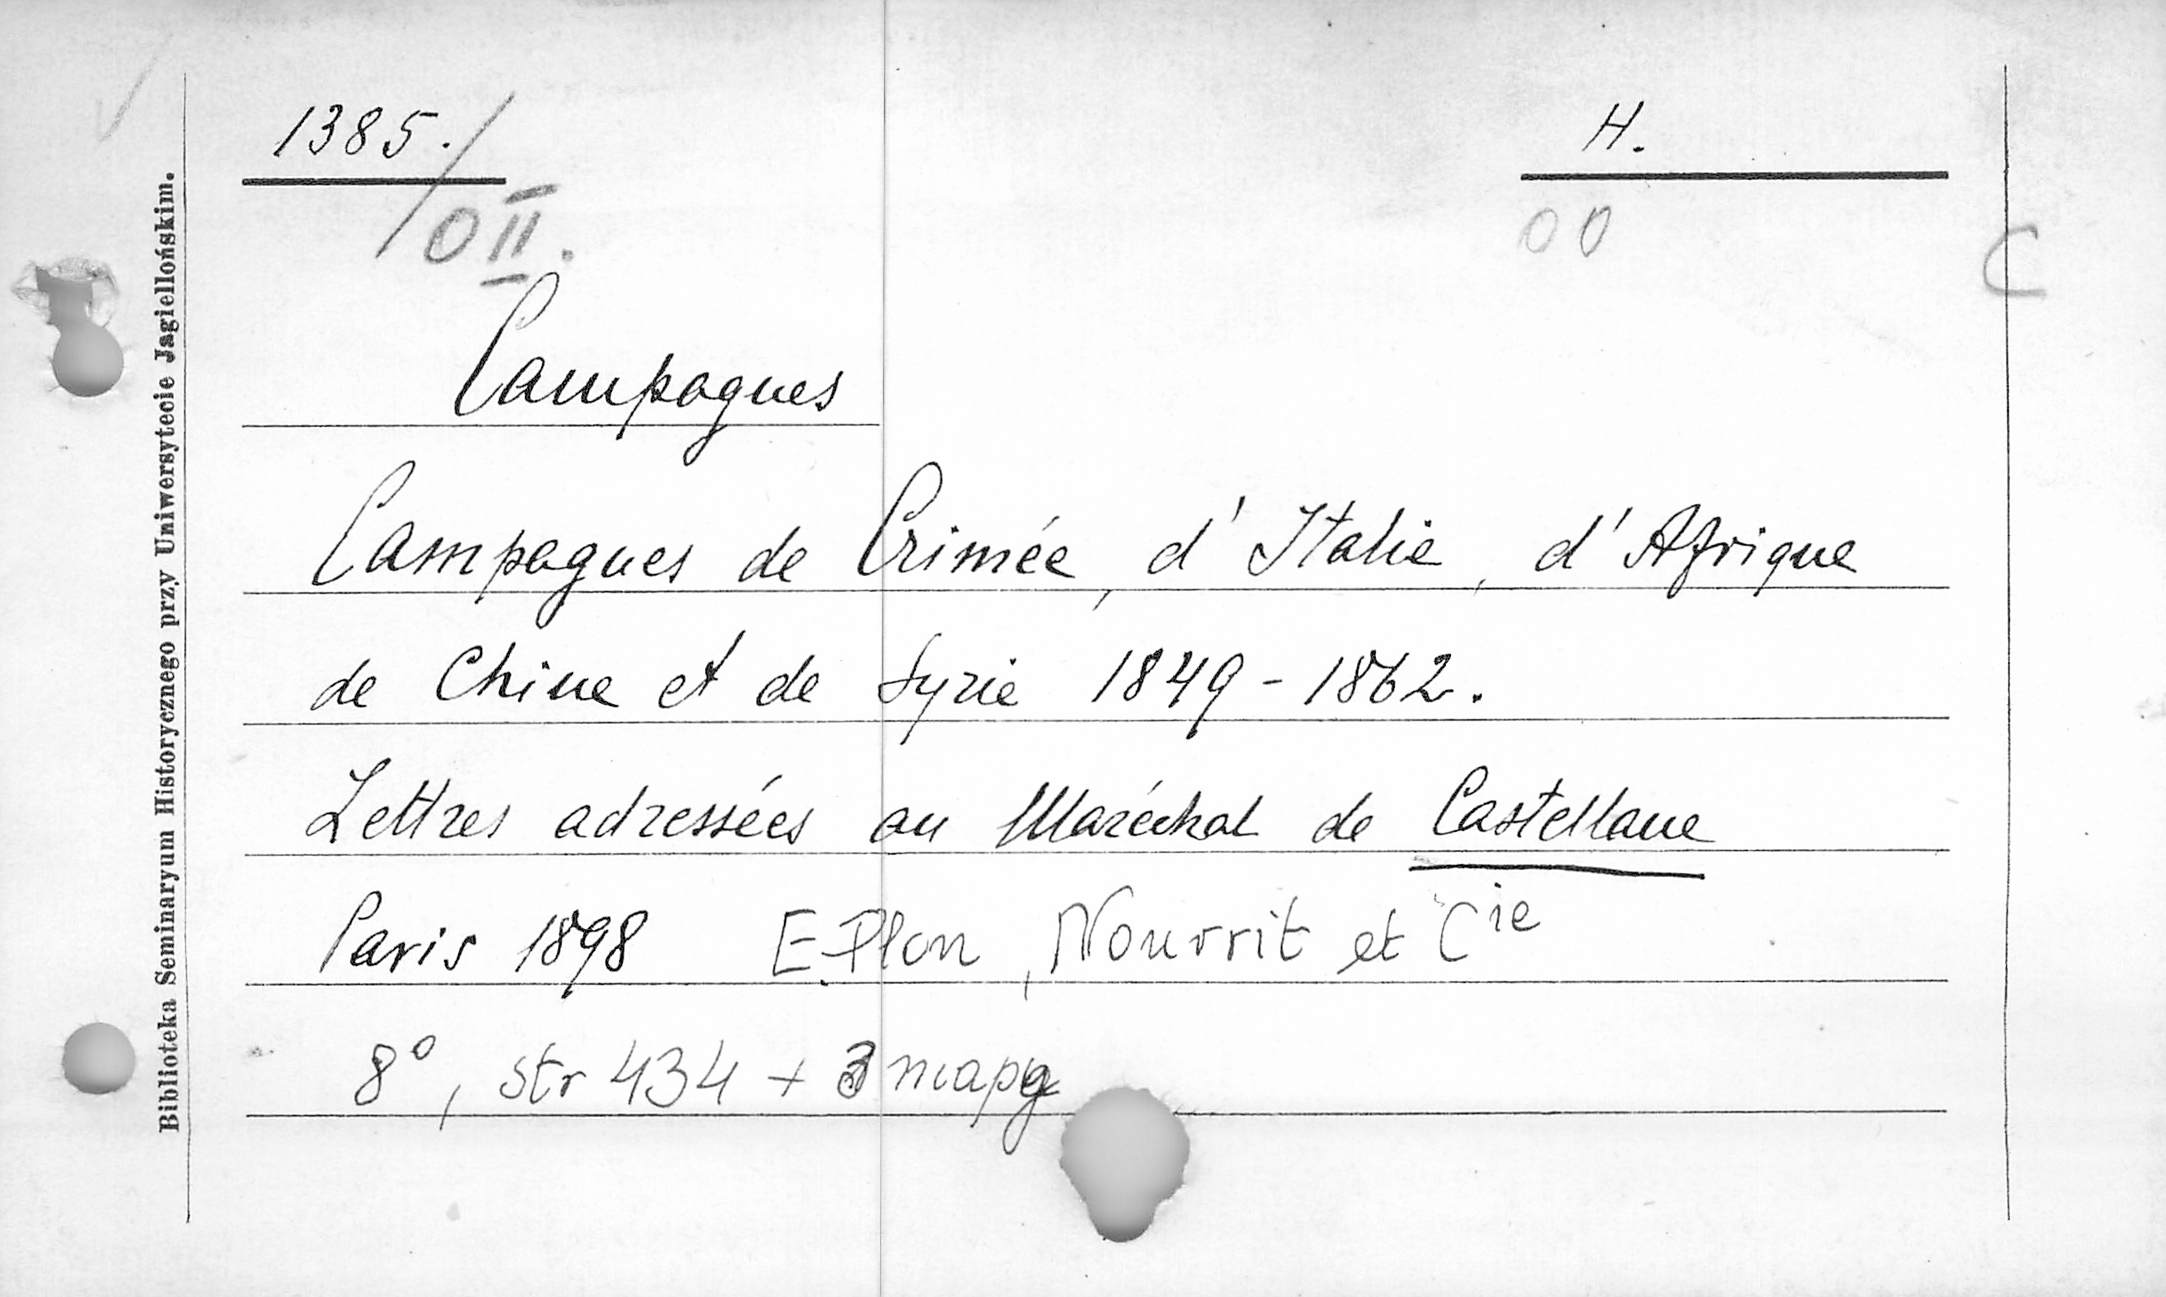 1385. H.
/O II. 00 C
Campagnes
Campagnes de Crimée, d'Italie, d'Afrique
de Chine et de Syrie 1849-1862.
Lettres adressées au Maréchal de Castellane
Paris 1898 E. Plon, Nourrit et Cie
8°, str 434 + 3 mapy
Biblioteka Seminaryum Historycznego przy Uniwersytecie Jagiellońskim.